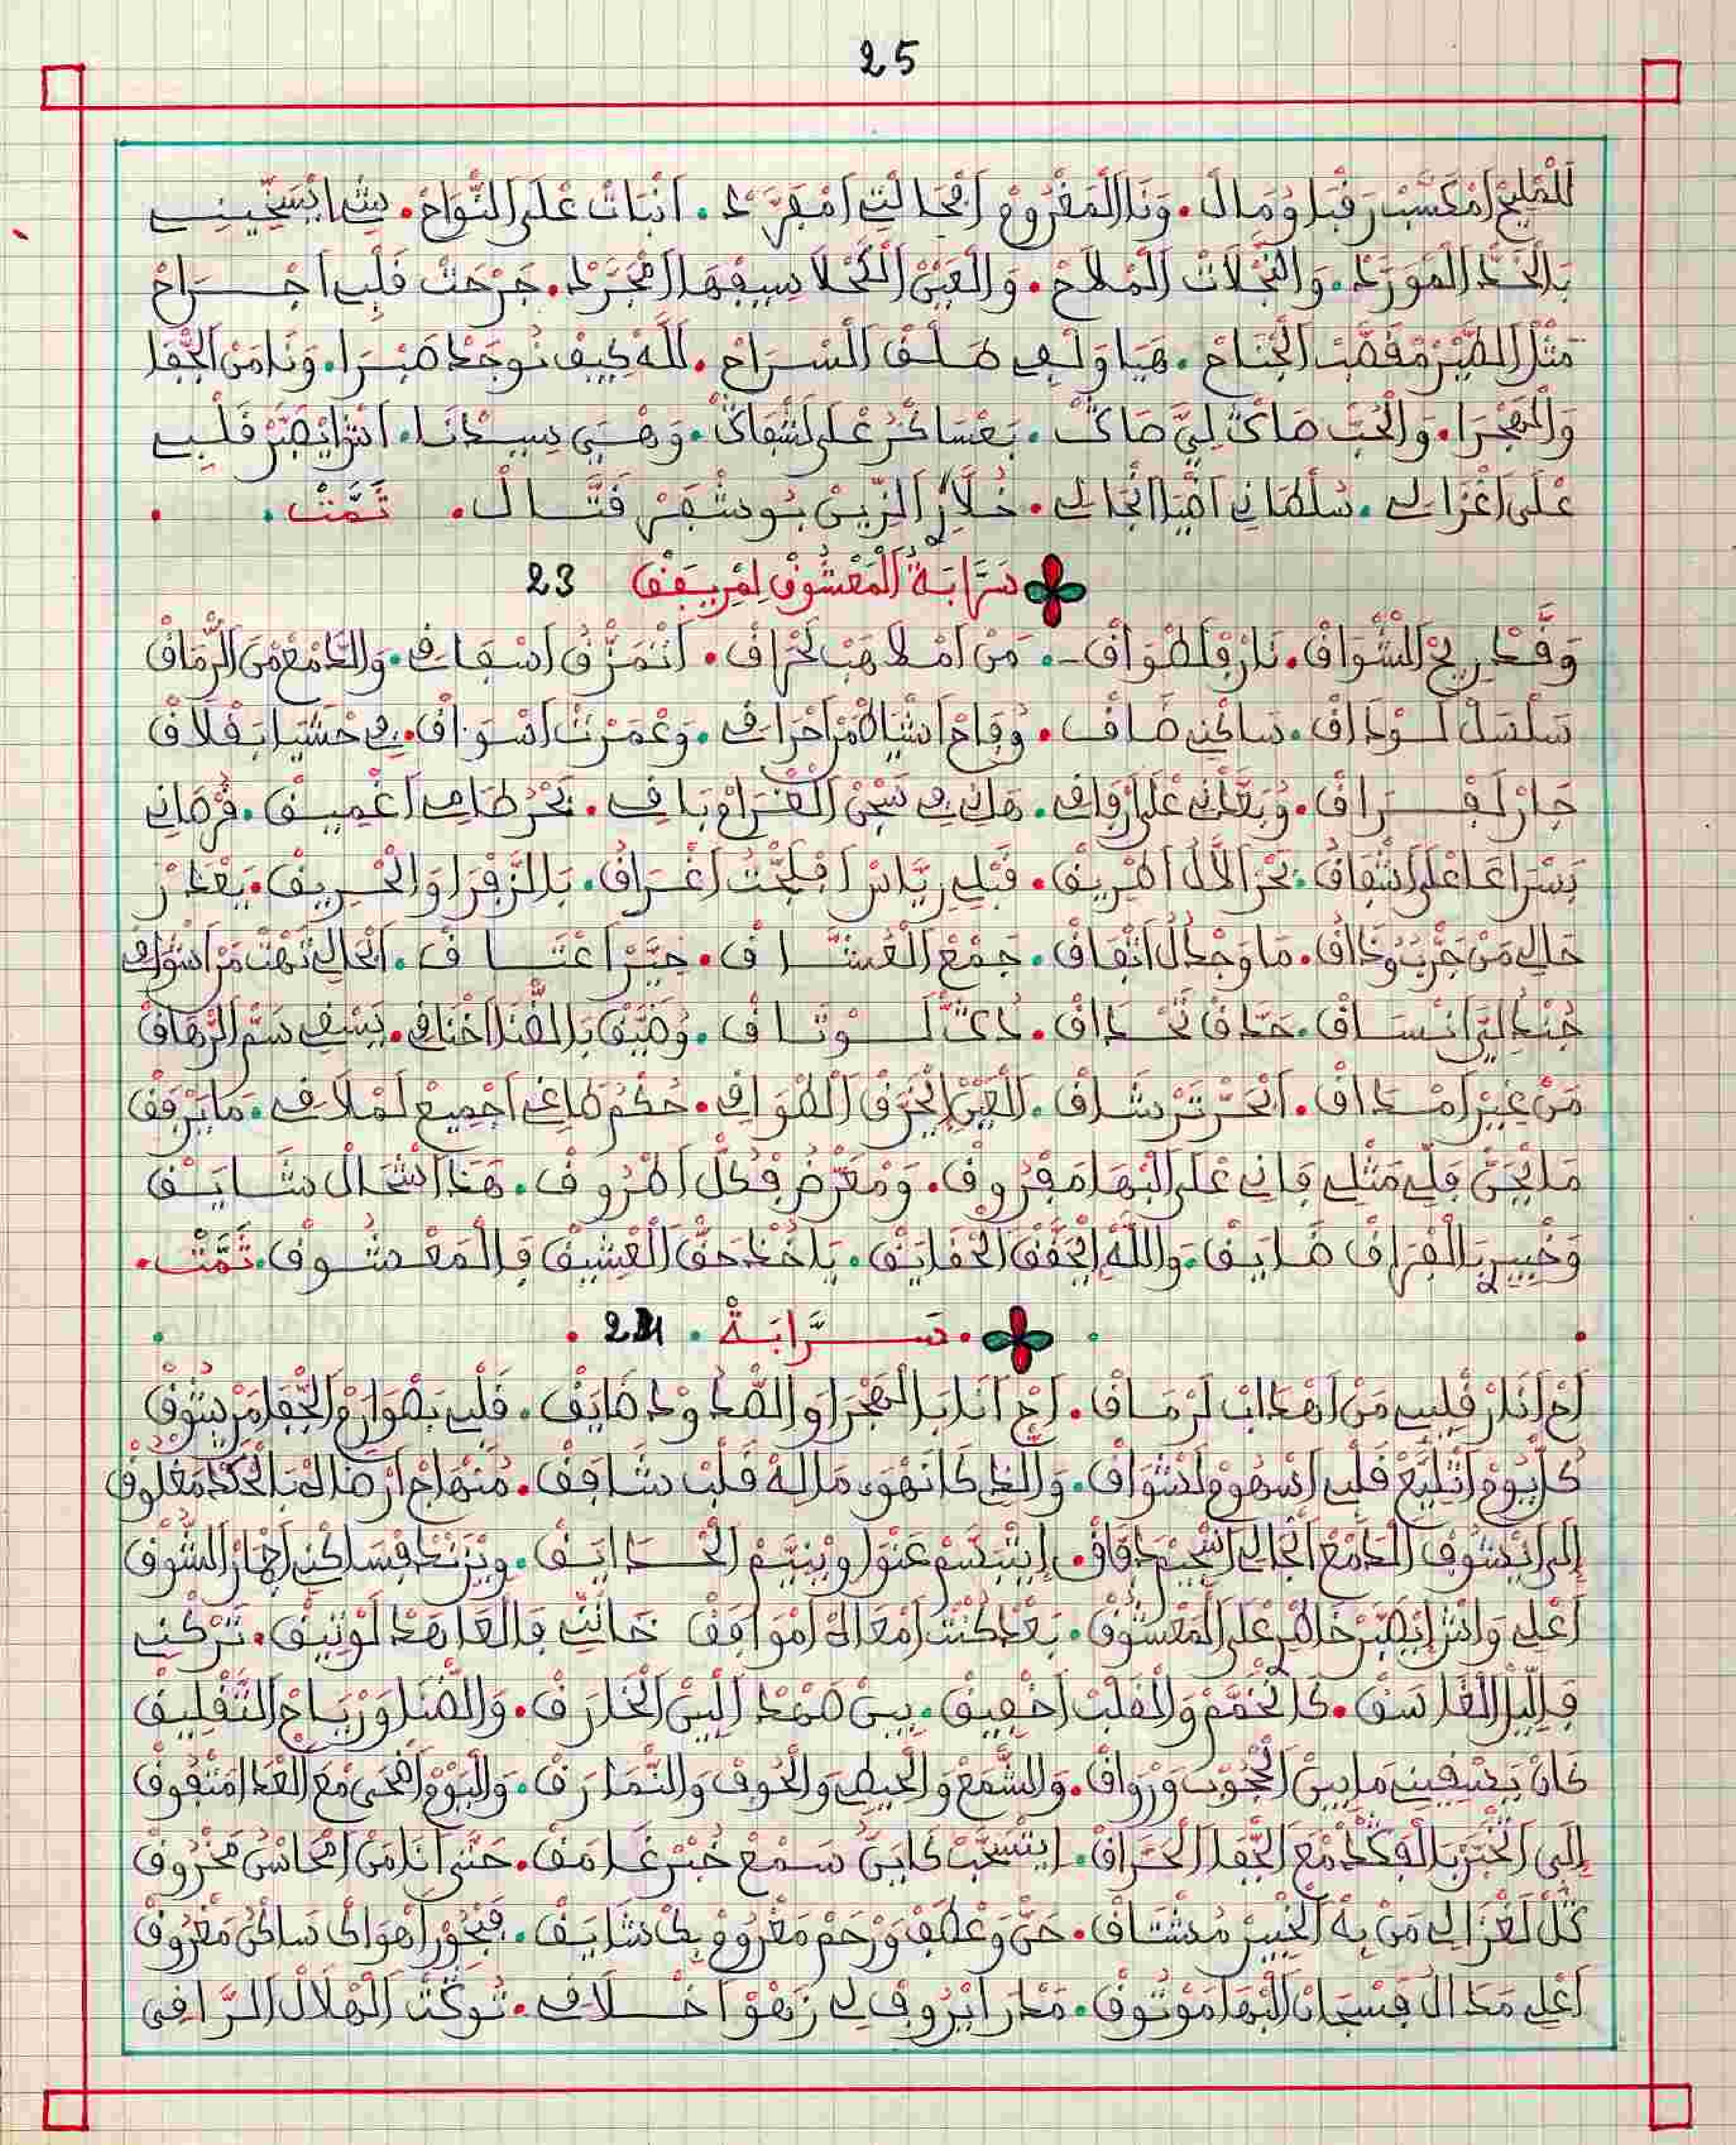 25
المليح امكسب رقبا ومال. ونا المغروم افحالتي امفرد. انبات على النواح. يشا بسحيني
بالخد المورد. والنجلات الملاح. والعين الكحلا سيفها امجرد. جرحت قلبي اجراح
مثل الطير مقصب الجناح. هيا ولفي طلق السراح. لله كيف نوجد صبرا. ونا من الجفا
والهجرا. والحب صاك ليَّ صاك. بعساكر على لشفاك. وهي سيدنا. اش ايصبر قلبي
على اغزالي. سلطاني اضيا انجالي. خلار الزين بوشفر فتال. تمت.
سرابة المعشوق لمريفق 23
وقد ريح الشواق. نار فلطواق. من املاهب لحراق. انتمزق اسفاقي. والدامع من الرماق
سلسل لوداق. ساكني ضاق. وقاح اشياط من احراقي. وعمرت اسواق. في حشيا بفلاق
جار لفراق. وبقاني على ارقاقي. هاني في سجن الغرام باقي. بحر طامي اغميق. فرصاني
بسراعا على اشقاق. بحر الال اطريق. قبلي رياس ابلجت اغراق. بالزفرا والحريق. بعدر
حالي من جرب وذاق. ما وجد ال اتفاق. جمع العشاق. حير اعتاق. انحالي نهت من اشواقي
جند لير انساق. حدق تحداق. دك لوتاق. وضيق بالضنا اخناقي. يسقي سم الزهاق
من غير امداق. انحر ترشاق. العين الحرق الطواقي. حكم طاغي اجميع لملاقي. ما يرفق
ما يحن فلي مثلي فاني على البها مفروق. ومعرض فكل اطروق. هذا اشحال شايق
وخيي بالفراق ضايق. والله يحقق الحقايق. ياخذ حق العشيق فالمعشوق. تمت.
سرابة. 24
اح انار قلبي من اهداب لرماق. اح انا بالهجرا والصدود ضايق. قلبي بصوارم الجفا مرشوق
كل يوم اتليع قلبي اسهوم لشواق. والذي كانهوى ماله قلب شافق. منهاج ارضاك بالحكد مغلوق
إلى ايشوف الدمع انجالي اسجيم دفاق. ايتبسم عنوا وينيم الحدايق. ويزند فساكني اجهار الشوق
اعلي واش ايصبر خاطر على المعشوق. بعد كنت امعاك اموافق خانني فالعاهد لوثيق. تركني
فليل الغاسق. كانخمم والقلب اخفيق. بين صمد البين الخارق. والضنا ورياح التقليق
كان يسقيني ما بين الحجوب ورواق. والشمع والحيطي والخوف والنمارق. واليوم اضحى مع العدا امتفوق
إلى انختبر بالفكد مع الجفا الحراق. ايتسحب كايبن سمع خبر غامق. حتى انا من امحاسن محروق
كل لغزالي من به الخيير مشتاق. حن وعطف ورحم مغروم بك شايق. فبحور اهواك ساكن مغروق
اعلي مدا ال فسجان البها موثوق. مدار ايروف لي زهو اخلاقي. نوكث الهلال الراقي